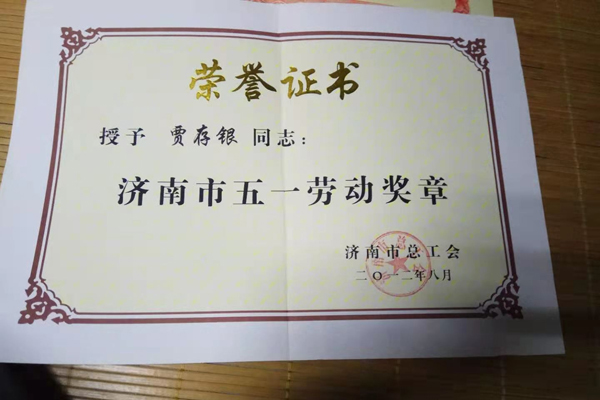 荣誉证书
授予 贾存银 同志：
济南市五一劳动奖章
济南市总工会
二〇一二年八月